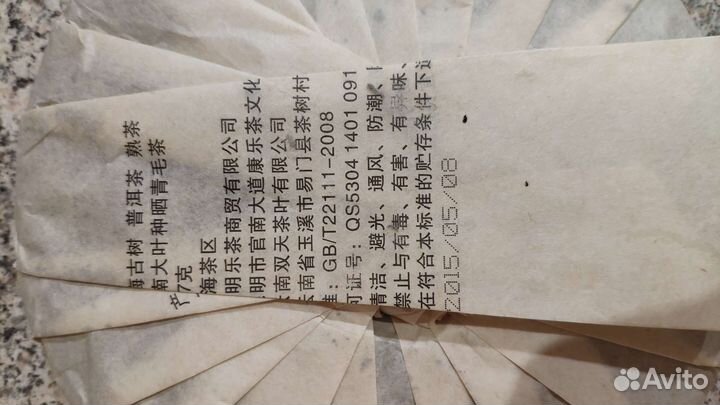 海古树 普洱茶 熟茶
南大叶种晒青毛茶
7克
海茶区
明乐茶商贸有限公司
明市官南大道康乐茶文化
南双天茶叶有限公司
云南省玉溪市易门县茶树村
准：GB/T22111-2008
可证号：QS5304 1401 091
清洁、避光、通风、防潮、
禁止与有毒、有害、有异味、
在符合本标准的贮存条件下
2015/05/08
Avito